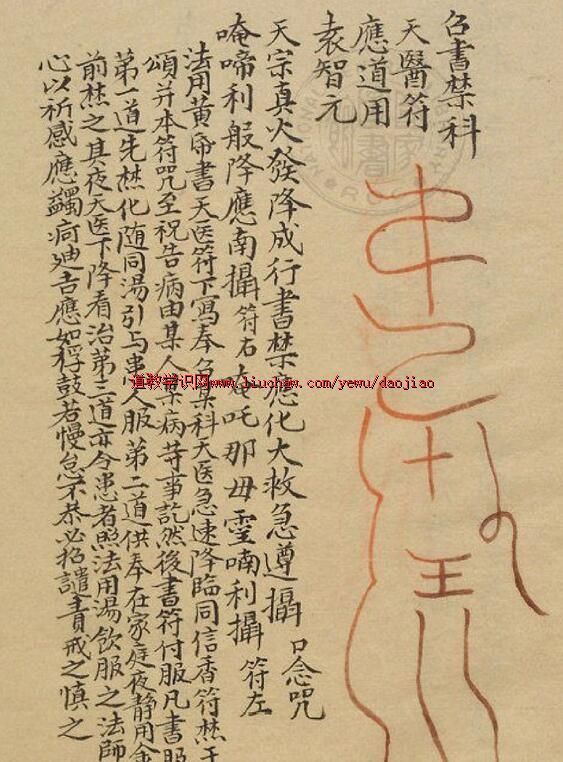 召書禁科
天醫符
應道用
袁智元
天宗真火發降成行書禁應化大救急遵攝 口念咒
唵啼利般降應南攝 符右 唵吒那毋霊喃利攝 符左
法用黃帋書天医符下寫奉召禁科天医急速降臨同信香符焚于
頌并本符咒至祝告病由某人某病苛事訖然後書符付服凡書服
第一道先焚化随同湯引与患人服第二道供奉在家庭夜静用金
前焚之其夜天医下降看治第三道亦令患者照法用湯飲服之法師
心以祈感應蠲疴廸吉應如桴鼓若慢怠不恭必招譴責戒之慎之
十
王
道教学识网www.liuchaw.com/yewu/daojiao